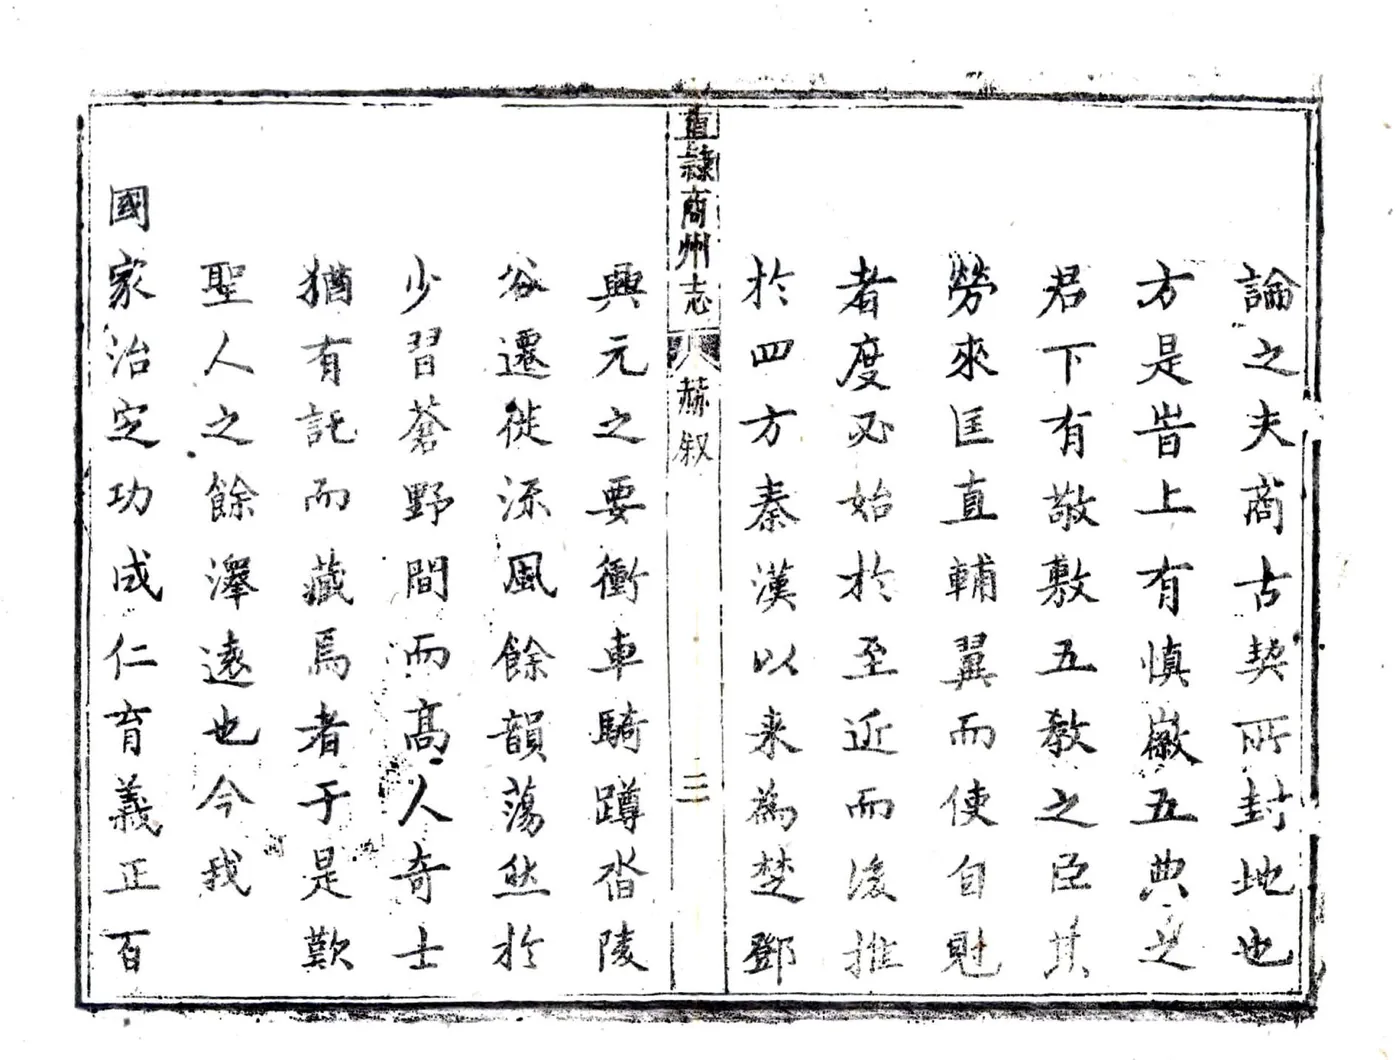 論之夫商古契所封地也
方是旹上有慎徽五典之
君下有敬敷五教之臣其
勞來匡直輔翼而使自得
者度必始於至近而後推
於四方秦漢以来為楚鄧
直隸商州志
赫叙
二
興元之要衝車騎蹲沓陵
谷遷徙流風餘韻蕩然於
少習蒼野間而高人奇士
猶有託而藏焉者于是歎
聖人之餘澤遠也今我
國家治定功成仁育義正百